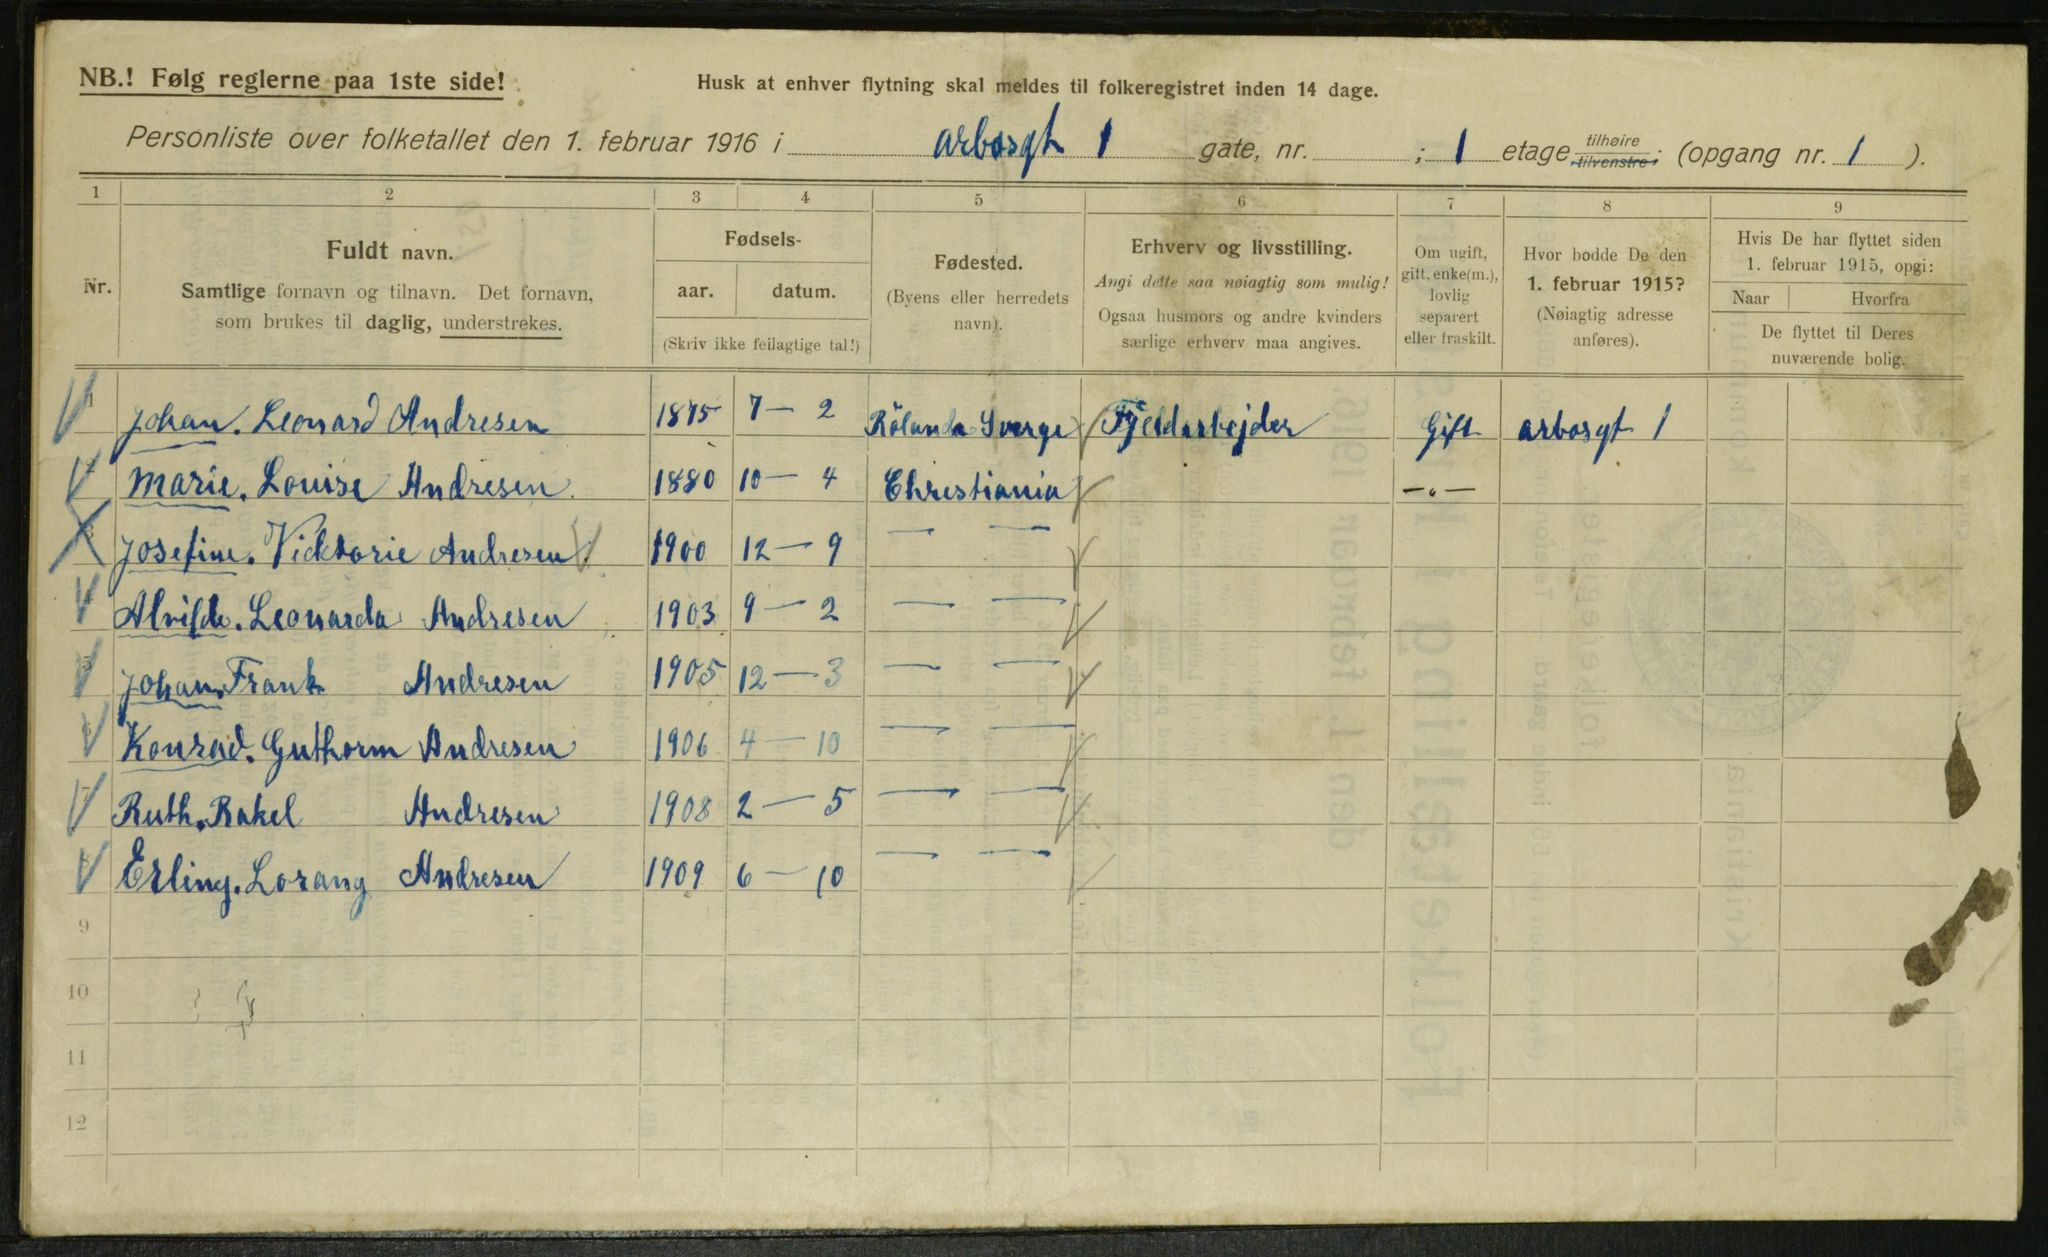 NB.! Følg reglerne paa 1ste side!
Husk at enhver flytning skal meldes til folkeregistret inden 14 dage.
Personliste over folketallet den 1. februar 1916 i arbosgt 1 gate, nr. ; 1 etage tilhøire tilvenstre; (opgang nr. 1 ).
1 2 3 4 5 6 7 8 9
Nr.
Fuldt navn.
Samtlige fornavn og tilnavn. Det fornavn,
som brukes til daglig, understrekes.
Fødsels-
aar. datum.
(Skriv ikke feilagtige tal!)
Fødested.
(Byens eller herredets
navn).
Erhverv og livsstilling.
Angi dette saa nøiagtig som mulig!
Ogsaa husmors og andre kvinders
særlige erhverv maa angives.
Om ugift,
gift, enke(m.),
lovlig
separert
eller fraskilt.
Hvor bodde De den
1. februar 1915?
(Nøiagtig adresse
anføres).
Hvis De har flyttet siden
1. februar 1915, opgi:
Naar Hvorfra
De flyttet til Deres
nuværende bolig.
1 Johan. Leonard Andresen 1875 7 — 2 Rölanda Sverge Fjeldarbejder Gift arbosgt 1
2 Marie. Louise Andresen 1880 10 — 4 Christiania —„—
3 Josefine. Vicktorie Andresen 1900 12 — 9 — —
4 Alvilde. Leonarda Andresen 1903 9 — 2 — —
5 Johan. Frank Andresen 1905 12 — 3 — —
6 Konrad. Guthorm Andresen 1906 4 — 10 — —
7 Ruth. Rakel Andresen 1908 2 — 5 — —
8 Erling. Lorang Andresen 1909 6 — 10 — —
9
10
11
12